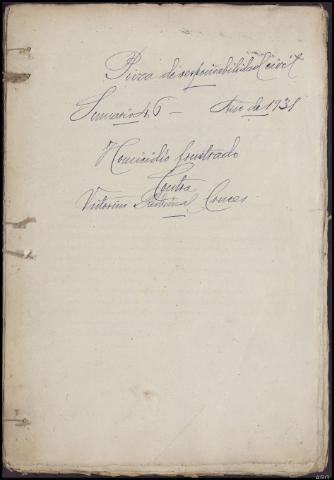 Pieza de responsabilidad Civil
Sumario 46 — Año de 1931
Homicidio frustrado
Contra
Vitorino Santana Conces